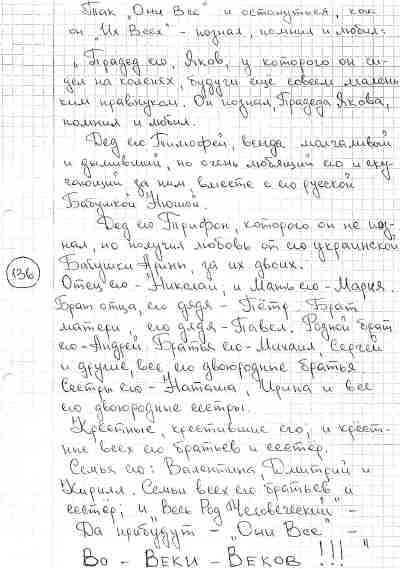 Так „Они Все" и останутся, как
он „Их Всех" – познал, помнил и любил:
„Прадед его, Яков, у которого он си-
дел на коленях, будучи еще совсем малень-
ким правнуком. Он познал, Прадеда Якова,
помнил и любил.
Дед его Тимофей, всегда молчаливый
и дымивший, но очень любящий его и ску-
чающий за ним, вместе с его русской
Бабушкой Нюшой.
Дед его Трифон, которого он не поз-
нал, но получил любовь от его украинской
Бабушки Арины, за их двоих.
136
Отец его – Николай, и Мать его – Мария.
Брат отца, его дядя – Пётр. Брат
матери, его дядя – Павел. Родной брат
его – Андрей. Братья его – Михаил, Сергей
и другие, все, его двоюродные братья.
Сестры его – Наташа, Ирина и все
его двоюродные сестры.
Крестные, крестившие его, и крест-
ные всех его братьев и сестёр.
Семья его: Валентина, Дмитрий и
Кирилл. Семьи всех его братьев и
сестёр; и Весь Род Человеческий" –
Да прибудут – „Они Все" –
Во – Веки – Веков !!! "